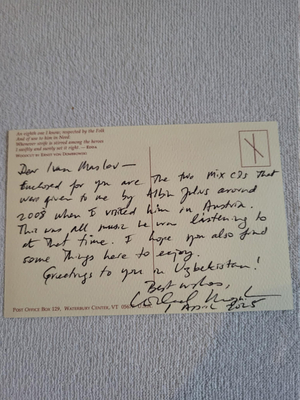 An eighth one I know, respected by the Folk
And of use to him in Need.
Whenever strife is stirred among the heroes
I swiftly and surely set it right. — Edda.
Dear Ivan Maslov —
Enclosed for you are the two mix CDs that
was given to me by Albin Julius around
2008 when I visited him in Austria.
This was all music he was listening to
at that time. I hope you also find
some things here to enjoy.
Greetings to you in Uzbekistan!
Best wishes,
April 2025
Post Office Box 129, Waterbury Center, VT